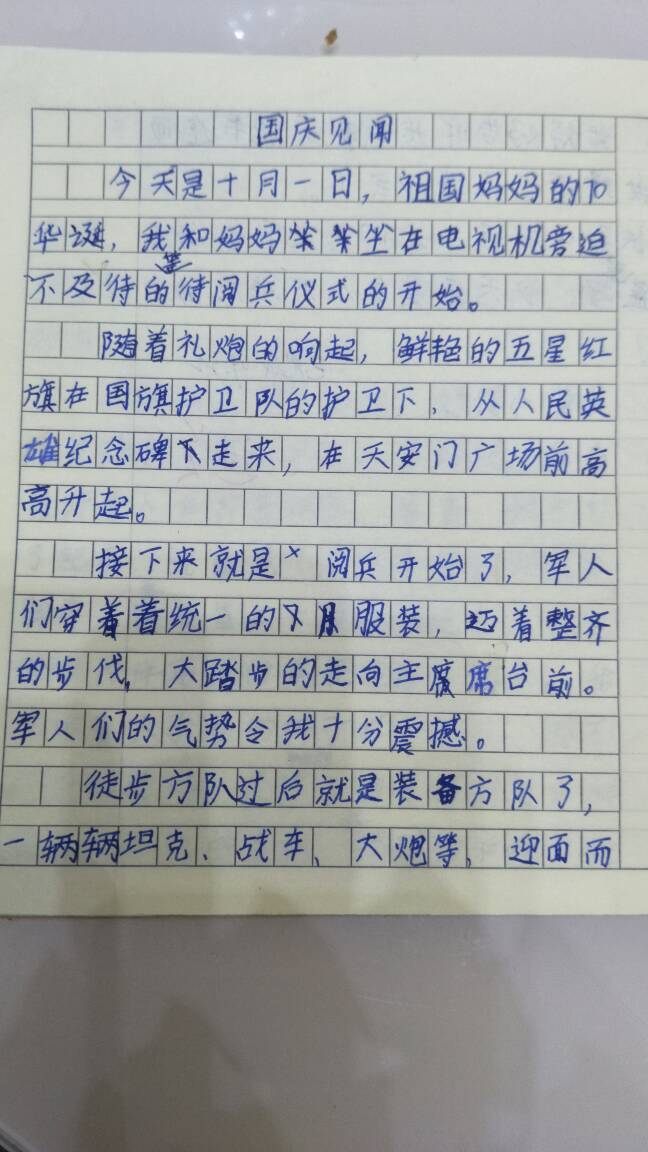 国庆见闻
今天是十月一日，祖国妈妈的70
华诞，我和妈妈坐在电视机旁迫
不及待的等待阅兵仪式的开始。
随着礼炮的响起，鲜艳的五星红
旗在国旗护卫队的护卫下，从人民英
雄纪念碑下走来，在天安门广场前高
高升起。
接下来就是阅兵开始了，军人
们穿着着统一的服装，迈着整齐
的步伐，大踏步的走向主席台前。
军人们的气势令我十分震撼。
徒步方队过后就是装备方队了，
一辆辆坦克、战车、大炮等，迎面而